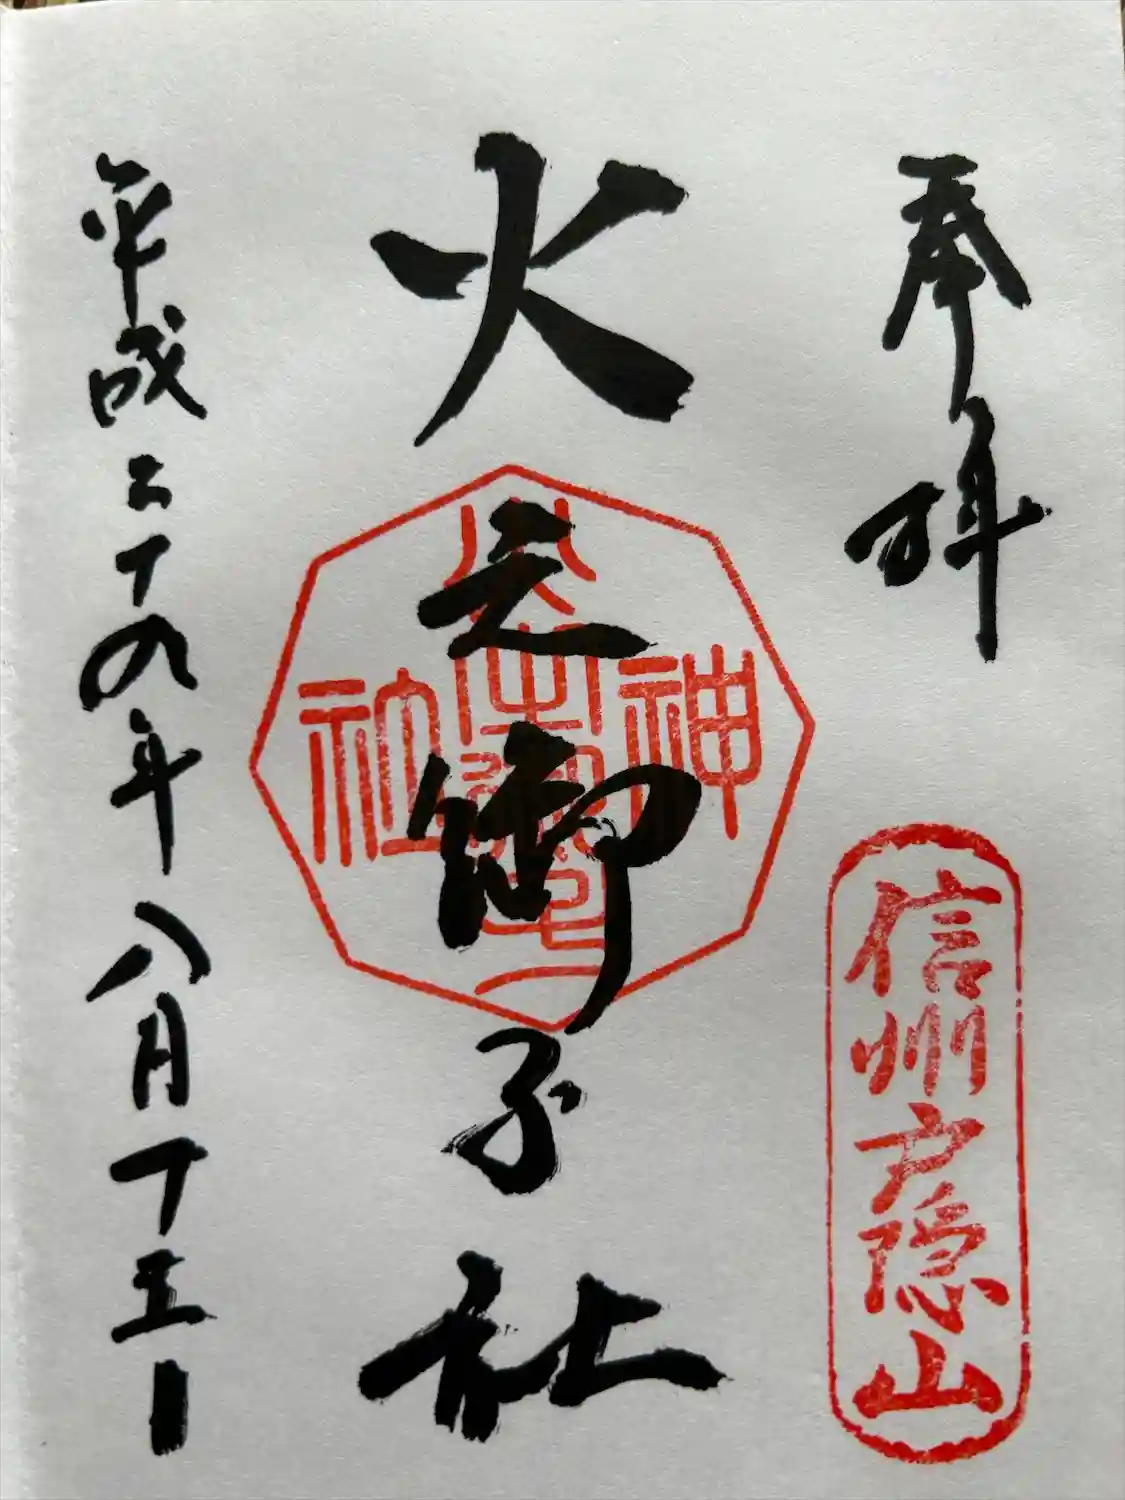 奉拝
信州戸隠山
火之御子社
神
火之御子
社
平成二十九年八月十五日